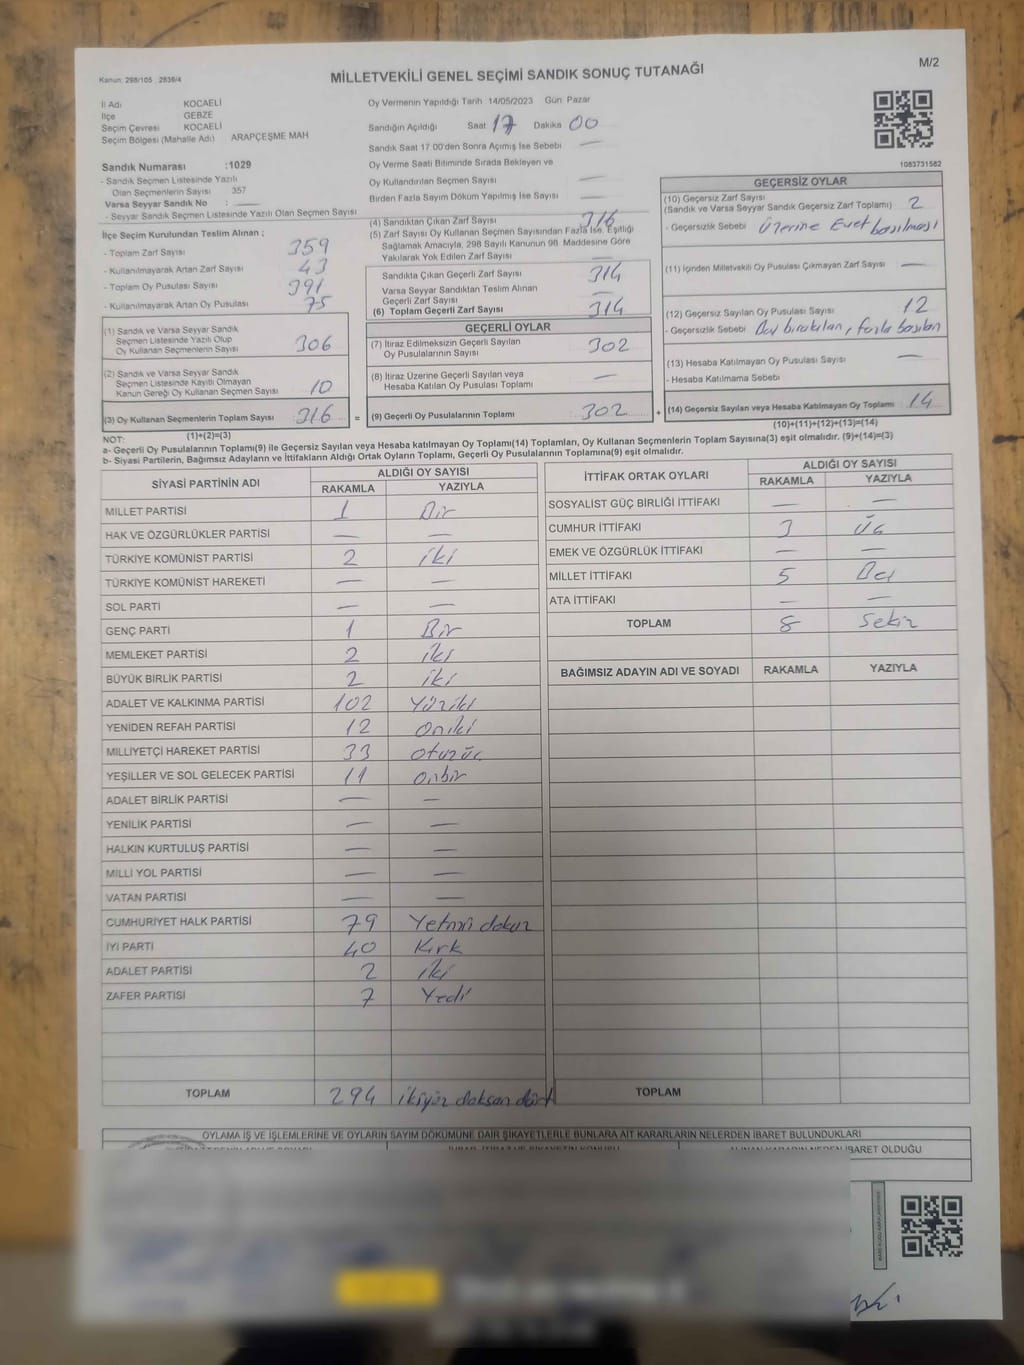 Kanun: 298/105 , 2839/4
MİLLETVEKİLİ GENEL SEÇİMİ SANDIK SONUÇ TUTANAĞI
M/2
İl Adı KOCAELİ
İlçe GEBZE
Seçim Çevresi KOCAELİ
Seçim Bölgesi (Mahalle Adı) ARAPÇEŞME MAH
Sandık Numarası :1029
- Sandık Seçmen Listesinde Yazılı
Olan Seçmenlerin Sayısı 357
Varsa Seyyar Sandık No : —
- Seyyar Sandık Seçmen Listesinde Yazılı Olan Seçmen Sayısı
Oy Vermenin Yapıldığı Tarih :14/05/2023 Gün: Pazar
Sandığın Açıldığı Saat 17 Dakika 00
Sandık Saat 17 00'den Sonra Açılmış İse Sebebi —
Oy Verme Saati Bitiminde Sırada Bekleyen ve
Oy Kullandırılan Seçmen Sayısı —
Birden Fazla Sayım Döküm Yapılmış İse Sayısı —
1083731582
İlçe Seçim Kurulundan Teslim Alınan ;
- Toplam Zarf Sayısı 359
- Kullanılmayarak Artan Zarf Sayısı 43
- Toplam Oy Pusulası Sayısı 391
- Kullanılmayarak Artan Oy Pusulası 75
(1) Sandık ve Varsa Seyyar Sandık
Seçmen Listesinde Yazılı Olup
Oy Kullanan Seçmenlerin Sayısı 306
(2) Sandık ve Varsa Seyyar Sandık
Seçmen Listesinde Kayıtlı Olmayan
Kanun Gereği Oy Kullanan Seçmen Sayısı 10
(3) Oy Kullanan Seçmenlerin Toplam Sayısı 316 =
(1)+(2)=(3)
(4) Sandıktan Çıkan Zarf Sayısı 316
(5) Zarf Sayısı Oy Kullanan Seçmen Sayısından Fazla İse, Eşitliği
Sağlamak Amacıyla, 298 Sayılı Kanunun 98 Maddesine Göre
Yakılarak Yok Edilen Zarf Sayısı —
Sandıkta Çıkan Geçerli Zarf Sayısı 314
Varsa Seyyar Sandıktan Teslim Alınan
Geçerli Zarf Sayısı —
(6) Toplam Geçerli Zarf Sayısı 314
GEÇERLİ OYLAR
(7) İtiraz Edilmeksizin Geçerli Sayılan
Oy Pusulalarının Sayısı 302
(8) İtiraz Üzerine Geçerli Sayılan veya
Hesaba Katılan Oy Pusulası Toplamı —
(9) Geçerli Oy Pusulalarının Toplamı 302 +
GEÇERSİZ OYLAR
(10) Geçersiz Zarf Sayısı
(Sandık ve Varsa Seyyar Sandık Geçersiz Zarf Toplamı) 2
- Geçersizlik Sebebi Üzerine Evet basılması
(11) İçinden Milletvekili Oy Pusulası Çıkmayan Zarf Sayısı —
(12) Geçersiz Sayılan Oy Pusulası Sayısı 12
- Geçersizlik Sebebi bırakılan, fazla basılan
(13) Hesaba Katılmayan Oy Pusulası Sayısı —
- Hesaba Katılmama Sebebi
(14) Geçersiz Sayılan veya Hesaba Katılmayan Oy Toplamı 14
(10)+(11)+(12)+(13)=(14)
NOT:
a- Geçerli Oy Pusulalarının Toplamı(9) ile Geçersiz Sayılan veya Hesaba katılmayan Oy Toplamı(14) Toplamları, Oy Kullanan Seçmenlerin Toplam Sayısına(3) eşit olmalıdır. (9)+(14)=(3)
b- Siyasi Partilerin, Bağımsız Adayların ve İttifakların Aldığı Ortak Oyların Toplamı, Geçerli Oy Pusulalarının Toplamına(9) eşit olmalıdır.
SİYASİ PARTİNİN ADI ALDIĞI OY SAYISI
RAKAMLA YAZIYLA
MİLLET PARTİSİ 1 Bir
HAK VE ÖZGÜRLÜKLER PARTİSİ — —
TÜRKİYE KOMÜNİST PARTİSİ 2 iki
TÜRKİYE KOMÜNİST HAREKETİ — —
SOL PARTİ — —
GENÇ PARTİ 1 Bir
MEMLEKET PARTİSİ 2 iki
BÜYÜK BİRLİK PARTİSİ 2 iki
ADALET VE KALKINMA PARTİSİ 102 Yüziki
YENİDEN REFAH PARTİSİ 12 Oniki
MİLLİYETÇİ HAREKET PARTİSİ 33 otuzüç
YEŞİLLER VE SOL GELECEK PARTİSİ 11 Onbir
ADALET BİRLİK PARTİSİ — —
YENİLİK PARTİSİ — —
HALKIN KURTULUŞ PARTİSİ — —
MİLLİ YOL PARTİSİ — —
VATAN PARTİSİ — —
CUMHURİYET HALK PARTİSİ 79 Yetmiş dokuz
İYİ PARTİ 40 Kırk
ADALET PARTİSİ 2 iki
ZAFER PARTİSİ 7 Yedi
TOPLAM 294 ikiyüz doksan dört
İTTİFAK ORTAK OYLARI ALDIĞI OY SAYISI
RAKAMLA YAZIYLA
SOSYALİST GÜÇ BİRLİĞİ İTTİFAKI — —
CUMHUR İTTİFAKI 3 Üç
EMEK VE ÖZGÜRLÜK İTTİFAKI — —
MİLLET İTTİFAKI 5 Beş
ATA İTTİFAKI — —
TOPLAM 8 Sekiz
BAĞIMSIZ ADAYIN ADI VE SOYADI RAKAMLA YAZIYLA
TOPLAM
OYLAMA İŞ VE İŞLEMLERİNE VE OYLARIN SAYIM DÖKÜMÜNE DAİR ŞİKAYETLERLE BUNLARA AİT KARARLARIN NELERDEN İBARET BULUNDUKLARI
İBARET OLDUĞU